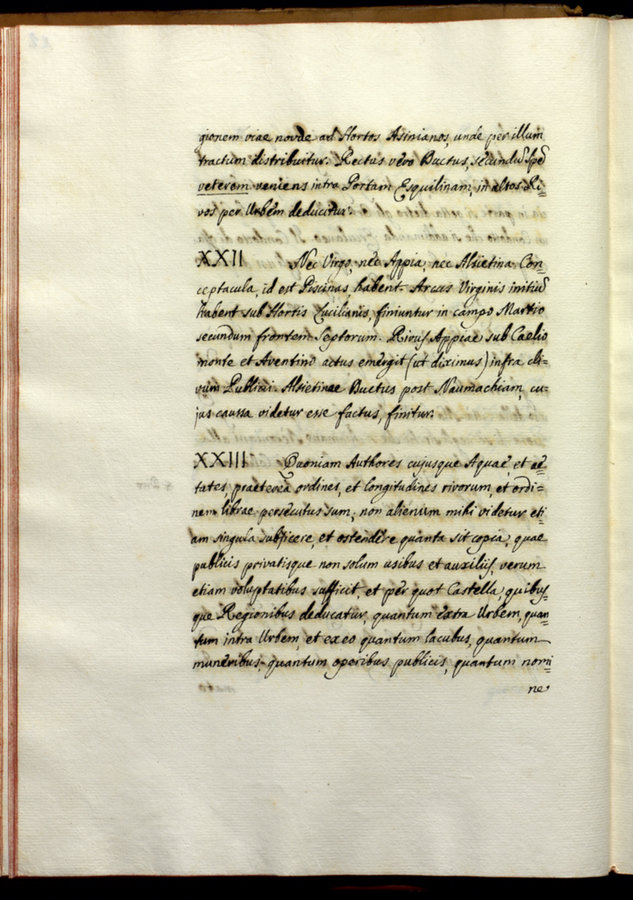 gionem viae novae ad Hortos Asinianos, unde per illum
tractum distribuitur. Rectus vero Ductus, secundũ Spẽ
veterem veniens intra Portam Esquilinam, in altos Ri=
vos per Urbem deducitur.
XXII Nec Virgo, nec Appia, nec Alsietina Con=
ceptacula, id est Piscinas habent. Arcus Virginis initiũ
habent sub Hortis Lucilianis, finiuntur in campo Martio
secundum frontem Septorum. Rivus Appiae sub Caelio
monte et Aventino actus emergit (ut diximus) infra cli=
vum Publici. Alsietinae Ductus post Naumachiam, cu=
jus caussa videtur esse factus, finitur.
XXIII Quoniam Authores cujusque Aquae, et ae=
tates, praeterea ordines, et longitudines rivorum, et ordi=
nem librae persecutus sum, non alienum mihi videtur eti=
am singula subjicere, et ostendere quanta sit copia, quae
publicis privatisque non solum usibus et auxiliis, verum
etiam voluptatibus sufficit, et per quot Castella, quibus=
que Regionibus deducatur, quantum extra Urbem, quan=
tum intra Urbem, et ex eo quantum lacubus, quantum
muneribus, quantum operibus publicis, quantum nomi=
ne